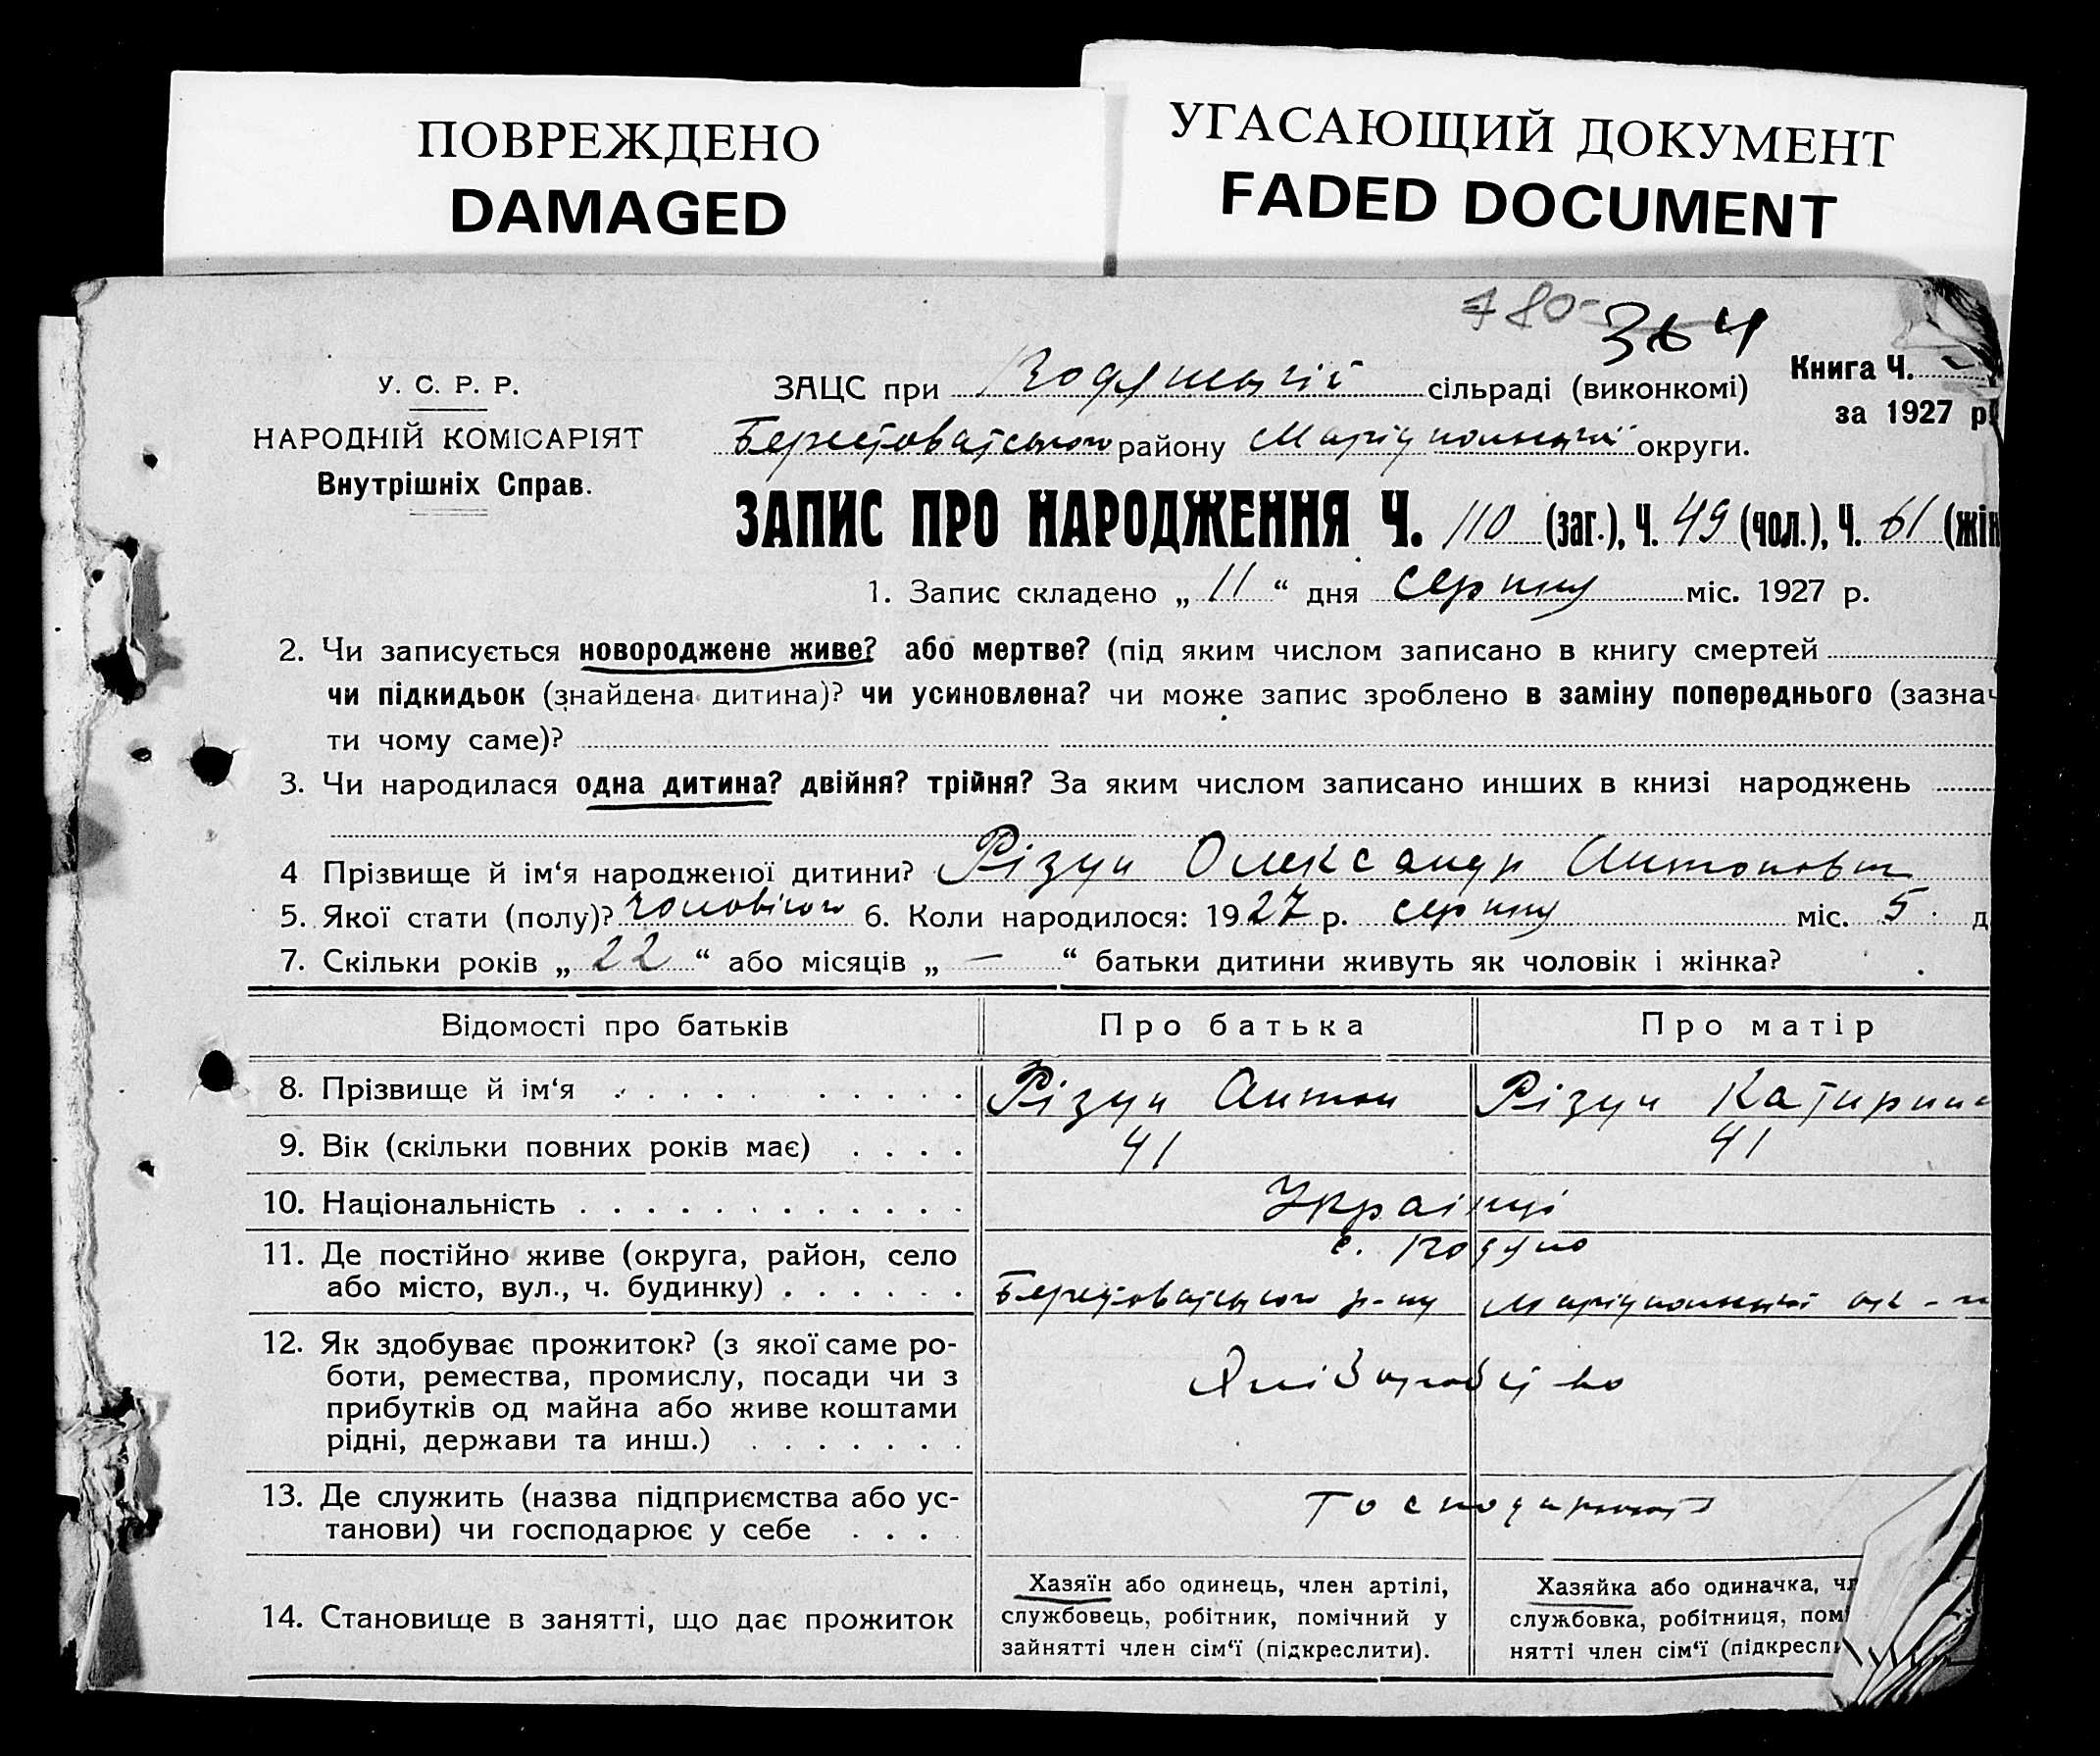 ПОВРЕЖДЕНО
DAMAGED
УГАСАЮЩИЙ ДОКУМЕНТ
FADED DOCUMENT
480
364
У. С. Р. Р.
НАРОДНІЙ КОМІСАРІЯТ
Внутрішніх Справ.
ЗАЦС при Водянській сільраді (виконкомі)
Книга Ч.
за 1927 р
району Маріупольської округи.
ЗАПИС ПРО НАРОДЖЕННЯ Ч. 110 (заг.), Ч. 49 (чол.), Ч. 61 (жін
1. Запис складено „ 11 “ дня серпня міс. 1927 р.
2. Чи записується новороджене живе? або мертве? (під яким числом записано в книгу смертей
чи підкидьок (знайдена дитина)? чи усиновлена? чи може запис зроблено в заміну попереднього (зазнач
ти чому саме)?
3. Чи народилася одна дитина? двійня? трійня? За яким числом записано инших в книзі народжень
4 Прізвище й ім‘я народженої дитини? Різун Олександр Антонович
5. Якої стати (полу)? чоловічого 6. Коли народилося: 1927 р. серпня міс. 5 д
7. Скільки років „ 22 “ або місяців „ — “ батьки дитини живуть як чоловік і жінка?
Відомості про батьків Про батька Про матір
8. Прізвище й ім‘я . . . . . . . . . . Різун Антон Різун Катирина
9. Вік (скільки повних років має) . . . . 41 41
10. Національність . . . . . . . . . . . . Українці
11. Де постійно живе (округа, район, село с. Водяно
або місто, вул., ч. будинку) . . . . . . р-ну Маріупольської
12. Як здобуває прожиток? (з якої саме ро-
боти, ремества, промислу, посади чи з Хліборобство
прибутків од майна або живе коштами
рідні, держави та инш.) . . . . . . .
13. Де служить (назва підприємства або ус-
танови) чи господарює у себе . . . .
14. Становище в занятті, що дає прожиток
Хазяїн або одинець, член артілі,
службовець, робітник, помічний у
зайнятті член сім‘ї (підкреслити).
Хазяйка або одиначка, чл
службовка, робітниця, пом
нятті член сім‘ї (підкресл